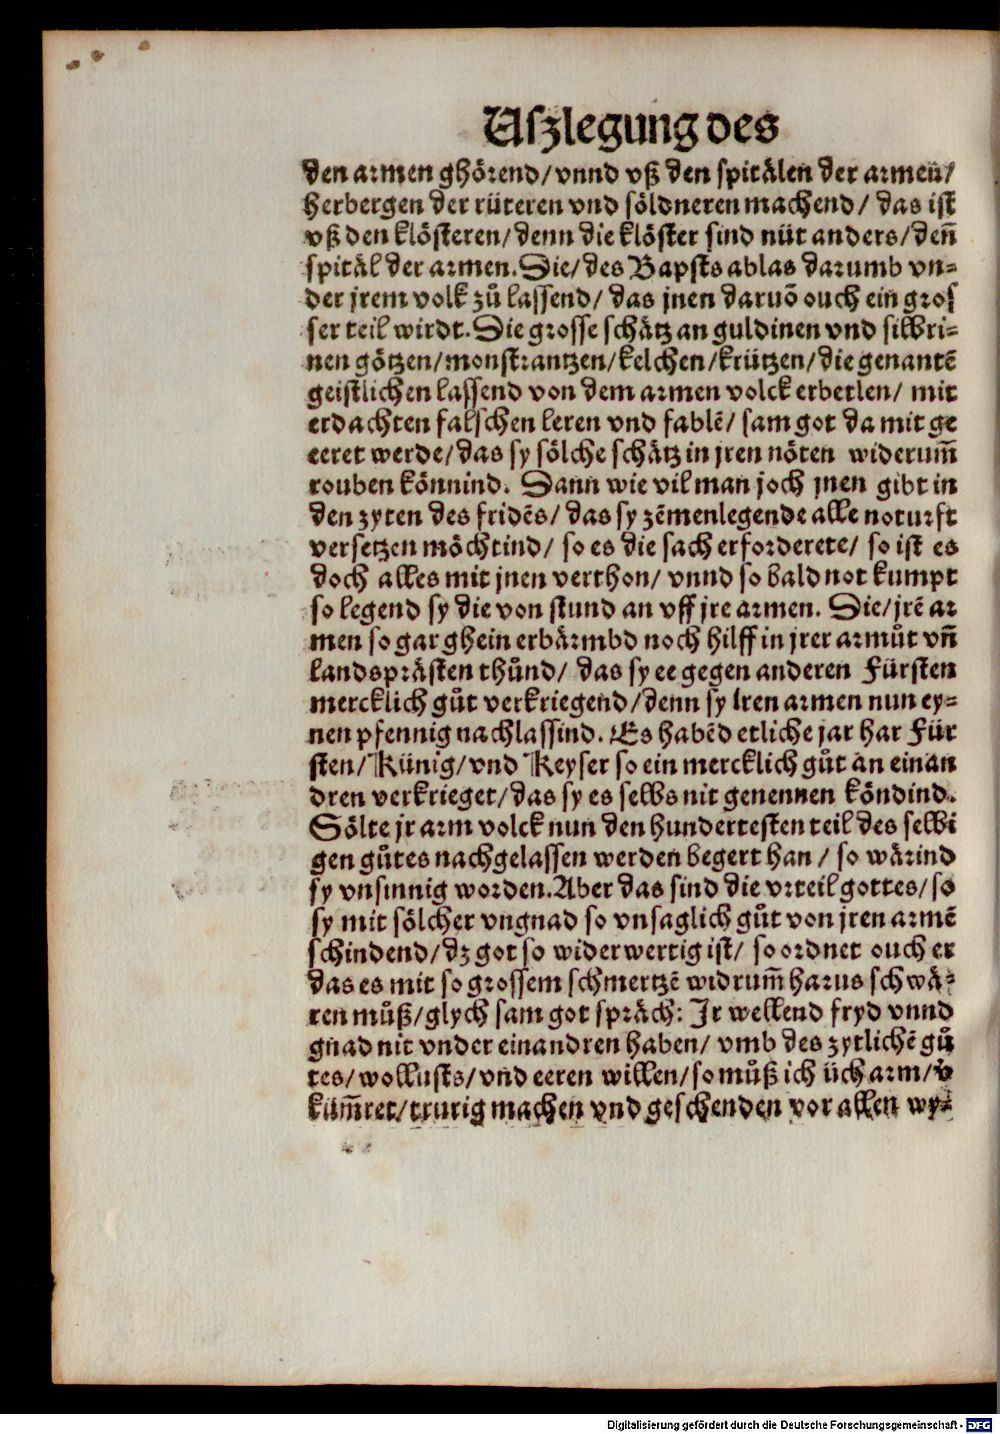 Uſzlegung des
den armen ghörend/ vnnd vß den spitälen der armen/
herbergen der rüteren vnd söldneren machend/ das ist
vß den klösteren/ denn die klöster sind nüt anders/ deñ
spitäl der armen. Die/ des Bapsts ablas darumb vn-
der jrem volk zů lassend/ das jnen daruõ ouch ein gros
ser teil wirdt. Die grosse schätz an guldinen vnd silbri-
nen götzen/ monstrantzen/ kelchen/ krützen/ die genantẽ
geistlichen lassend von dem armen volck erbetlen/ mit
erdachten falschen leren vnd fablẽ/ sam got da mit ge
eeret werde/ das sy sölche schätz in jren nöten widerum̃
rouben könnind. Dann wie vil man joch jnen gibt in
den zyten des fridẽs/ das sy zẽmenlegende alle noturft
versetzen möchtind/ so es die sach erforderete/ so ist es
doch alles mit jnen verthon/ vnnd so bald not kumpt
so legend sy die von stund an vff jre armen. Die/ jrẽ ar
men so gar ghein erbärmbd noch hilff in jrer armůt vñ
landsprästen thůnd/ das sy ee gegen anderen Fürsten
mercklich gůt verkriegend/ denn sy iren armen nun ey-
nen pfennig nachlassind. Es habẽd etliche jar har Für
sten/ Künig/ vnd Keyser so ein mercklich gůt an einan
dren verkrieget/ das sy es selbs nit genennen köndind.
Sölte jr arm volck nun den hundertesten teil des selbi
gen gůtes nachgelassen werden begert han/ so wärind
sy vnsinnig worden. Aber das sind die vrteil gottes/ so
sy mit sölcher vngnad so vnsaglich gůt von jren armẽ
schindend/ dz got so widerwertig ist/ so ordnet ouch er
das es mit so grossem schmertzẽ widrum̃ harus schwä-
ren můß/ glych sam got spräch: Ir wellend fryd vnnd
gnad nit vnder einandren haben/ vmb des zytlichẽ gů
tes/ wollusts/ vnd eeren willen/ so můß ich üch arm/ v̉
küm̃ret/ trurig machen vnd geschenden vor allen wy-
Digitalisierung gefördert durch die Deutsche Forschungsgemeinschaft - DFG